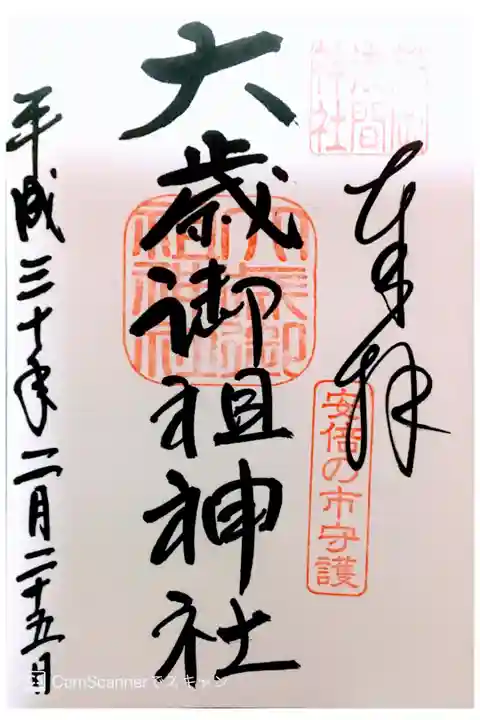 奉拝
安倍の市守護
大歳御祖神社
平成三十年二月二十五日
CamScannerでスキャン